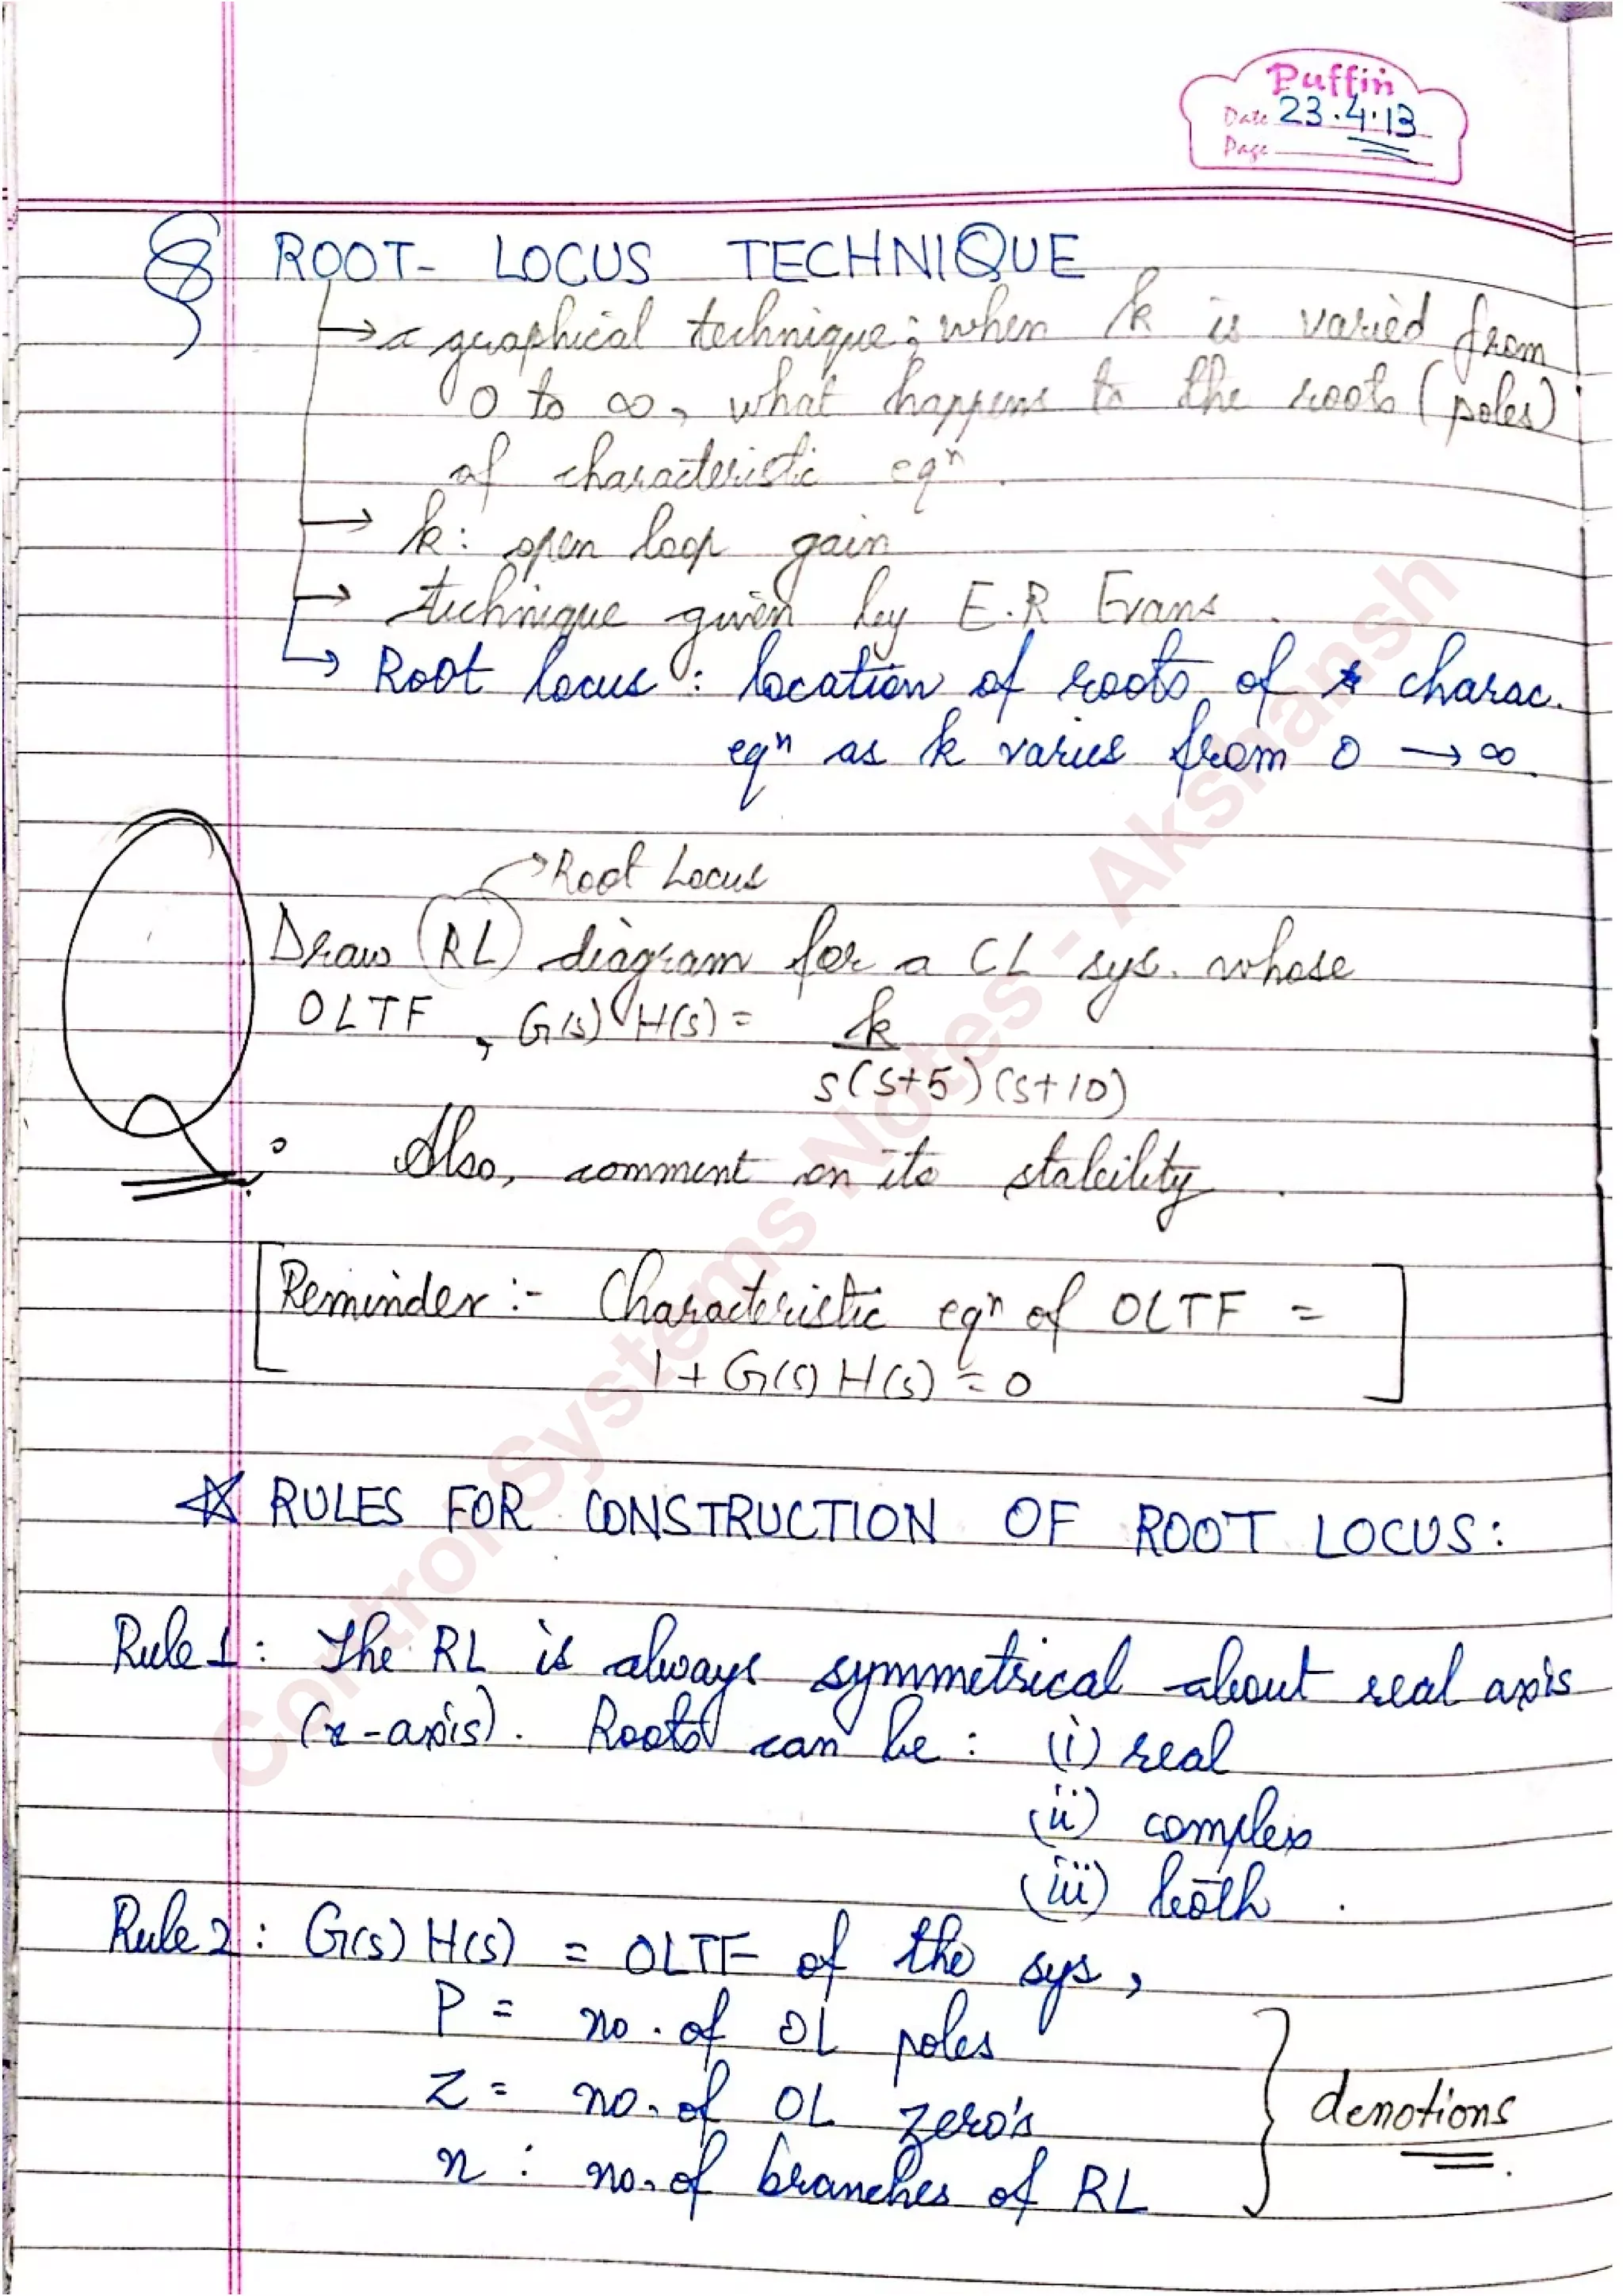 Puffin
Date 23.4.13
Page
§ ROOT-LOCUS TECHNIQUE
→ a graphical technique; when k is varied from
0 to ∞, what happens to the roots (poles)
of characteristic eqⁿ.
→ k: open loop gain
→ technique given by E.R Evans.
→ Root locus: location of roots of charac.
eqⁿ as k varies from 0 → ∞.
Root Locus
Q: Draw RL diagram for a CL sys. whose
OLTF, G(s) H(s) = k
s(s+5)(s+10)
Also, comment on its stability.
[Reminder:- Characteristic eqⁿ of OLTF =
1 + G(s) H(s) = 0]
☆ RULES FOR CONSTRUCTION OF ROOT LOCUS:
Rule 1: The RL is always symmetrical about real axis
(x-axis). Roots can be: (i) real
(ii) complex
(iii) both.
Rule 2: G(s) H(s) = OLTF of the sys,
P = no. of OL poles
Z = no. of OL zero's
n : no. of branches of RL
} denotions.
Control Systems Notes - Akshansh